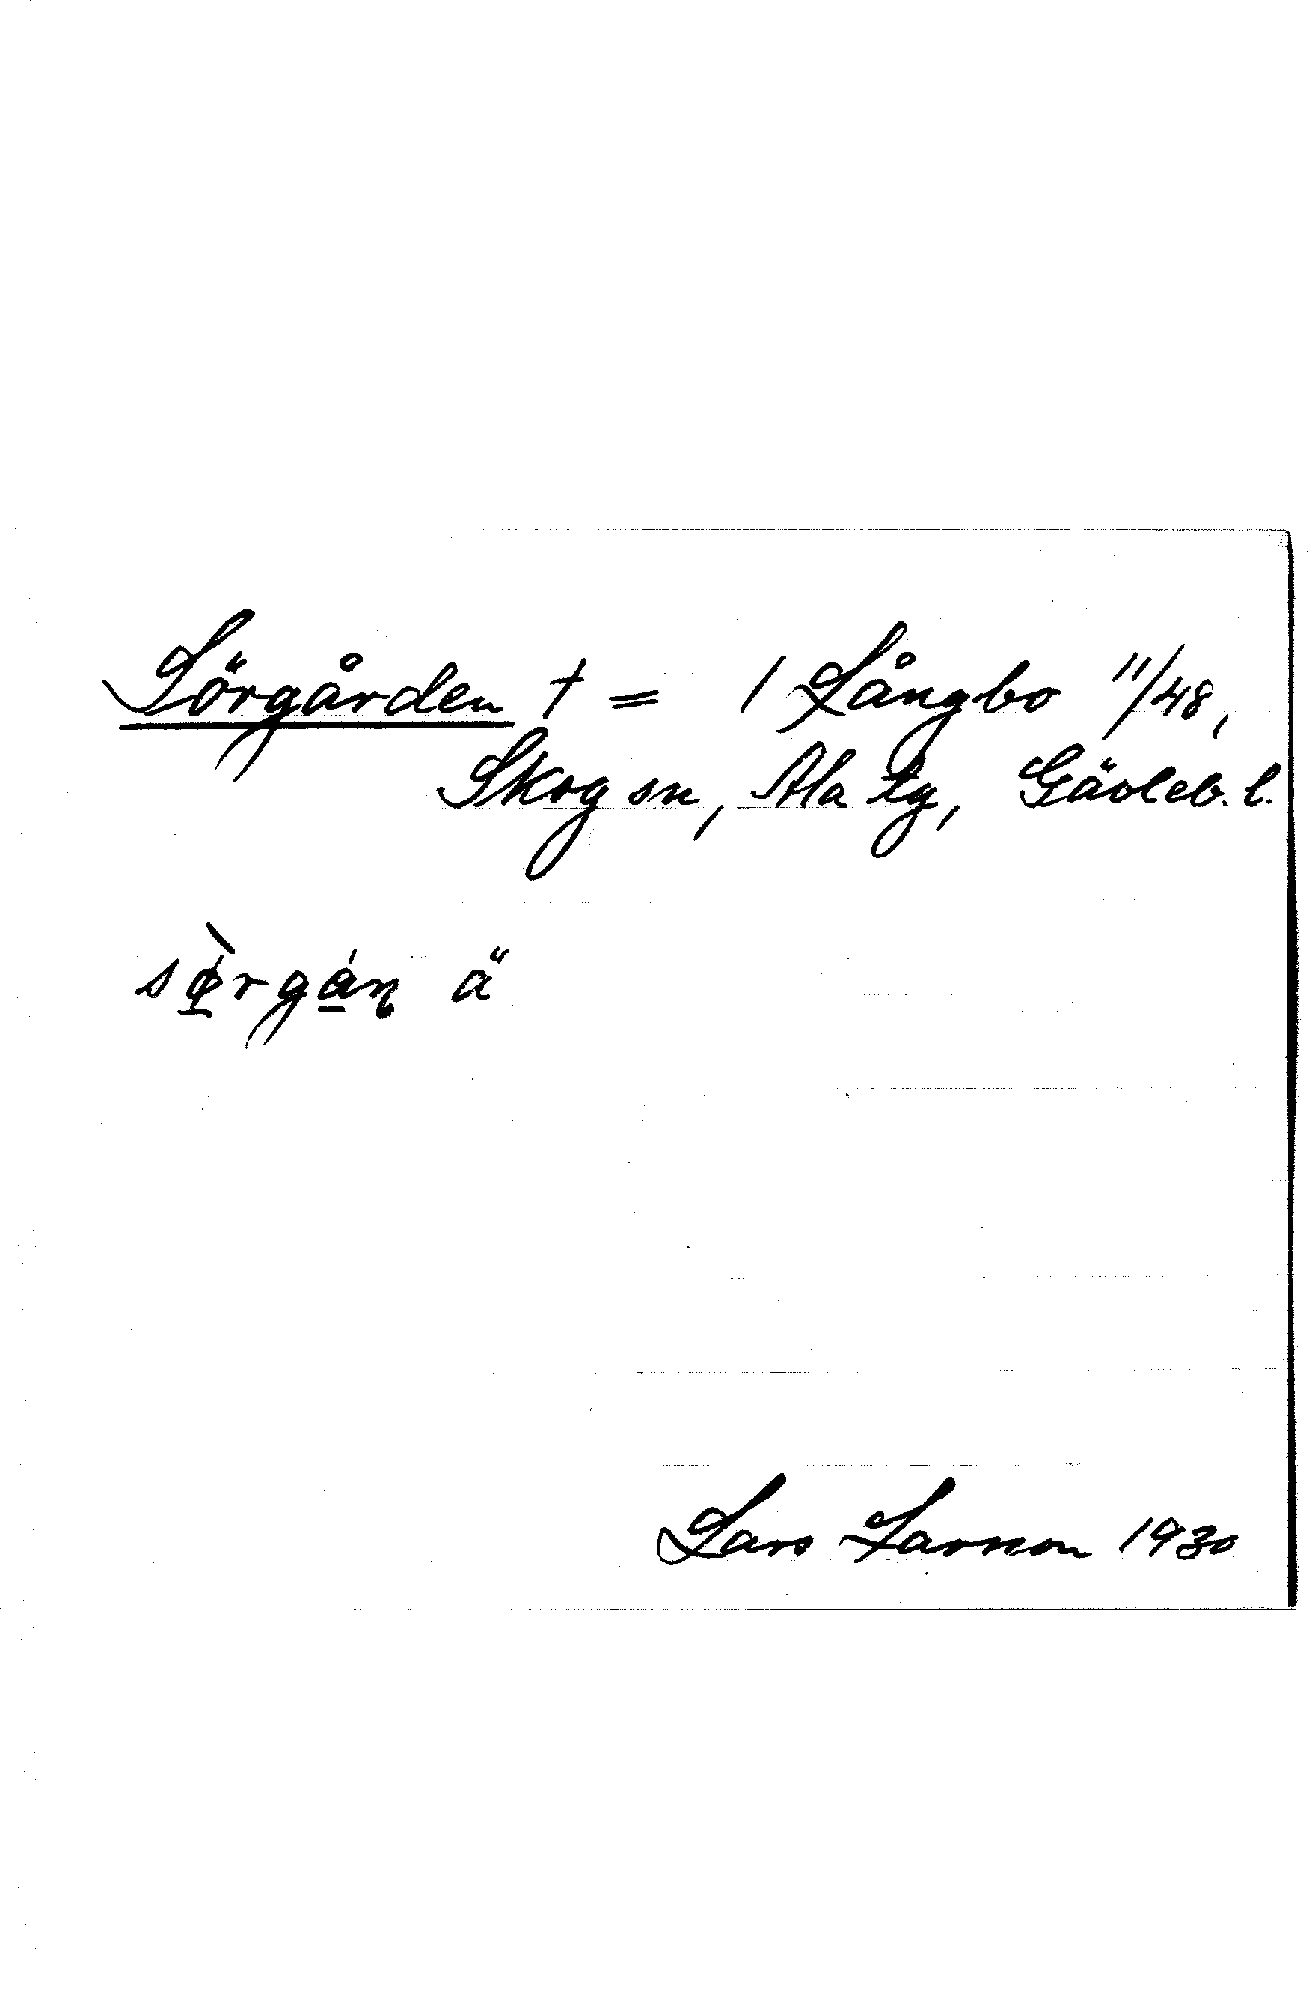 Sörgården † = 1 Långbo 11/48,
Skog sn, Ala tg, Gävleb. l.
sø̀rgán ä
Lars Larsson 1930